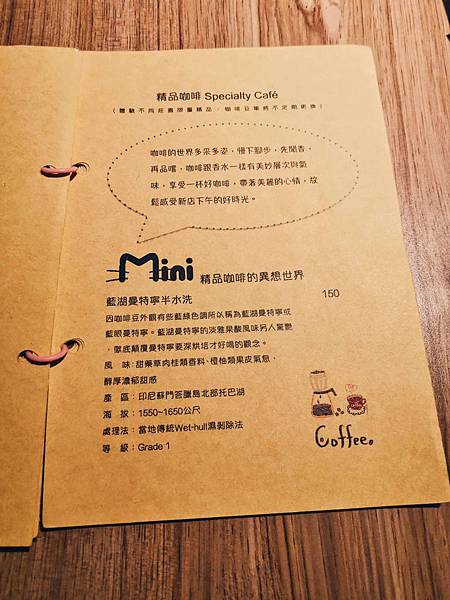 精品咖啡 Specialty Café
咖啡的世界多采多姿，慢下腳步，先聞香，
再品嚐，咖啡跟香水一樣有美妙層次與氣
味，享受一杯好咖啡，帶著美麗的心情，放
鬆感受新店下午的好時光。
Mini 精品咖啡的異想世界
藍湖曼特寧半水洗 150
因咖啡豆外觀有些藍綠色調所以稱為藍湖曼特寧或
藍眼曼特寧。藍湖曼特寧的淡雅果酸風味另人驚艷
，徹底顛覆曼特寧要深烘培才好喝的觀念。
風 味：甜藥草肉桂類香料、橙柚類果皮氣息、
醇厚濃郁甜感
產 區：印尼蘇門答臘島北部托巴湖
海 拔：1550~1650公尺
處理法：當地傳統Wet-hull濕剝除法
等 級：Grade 1
Coffee.